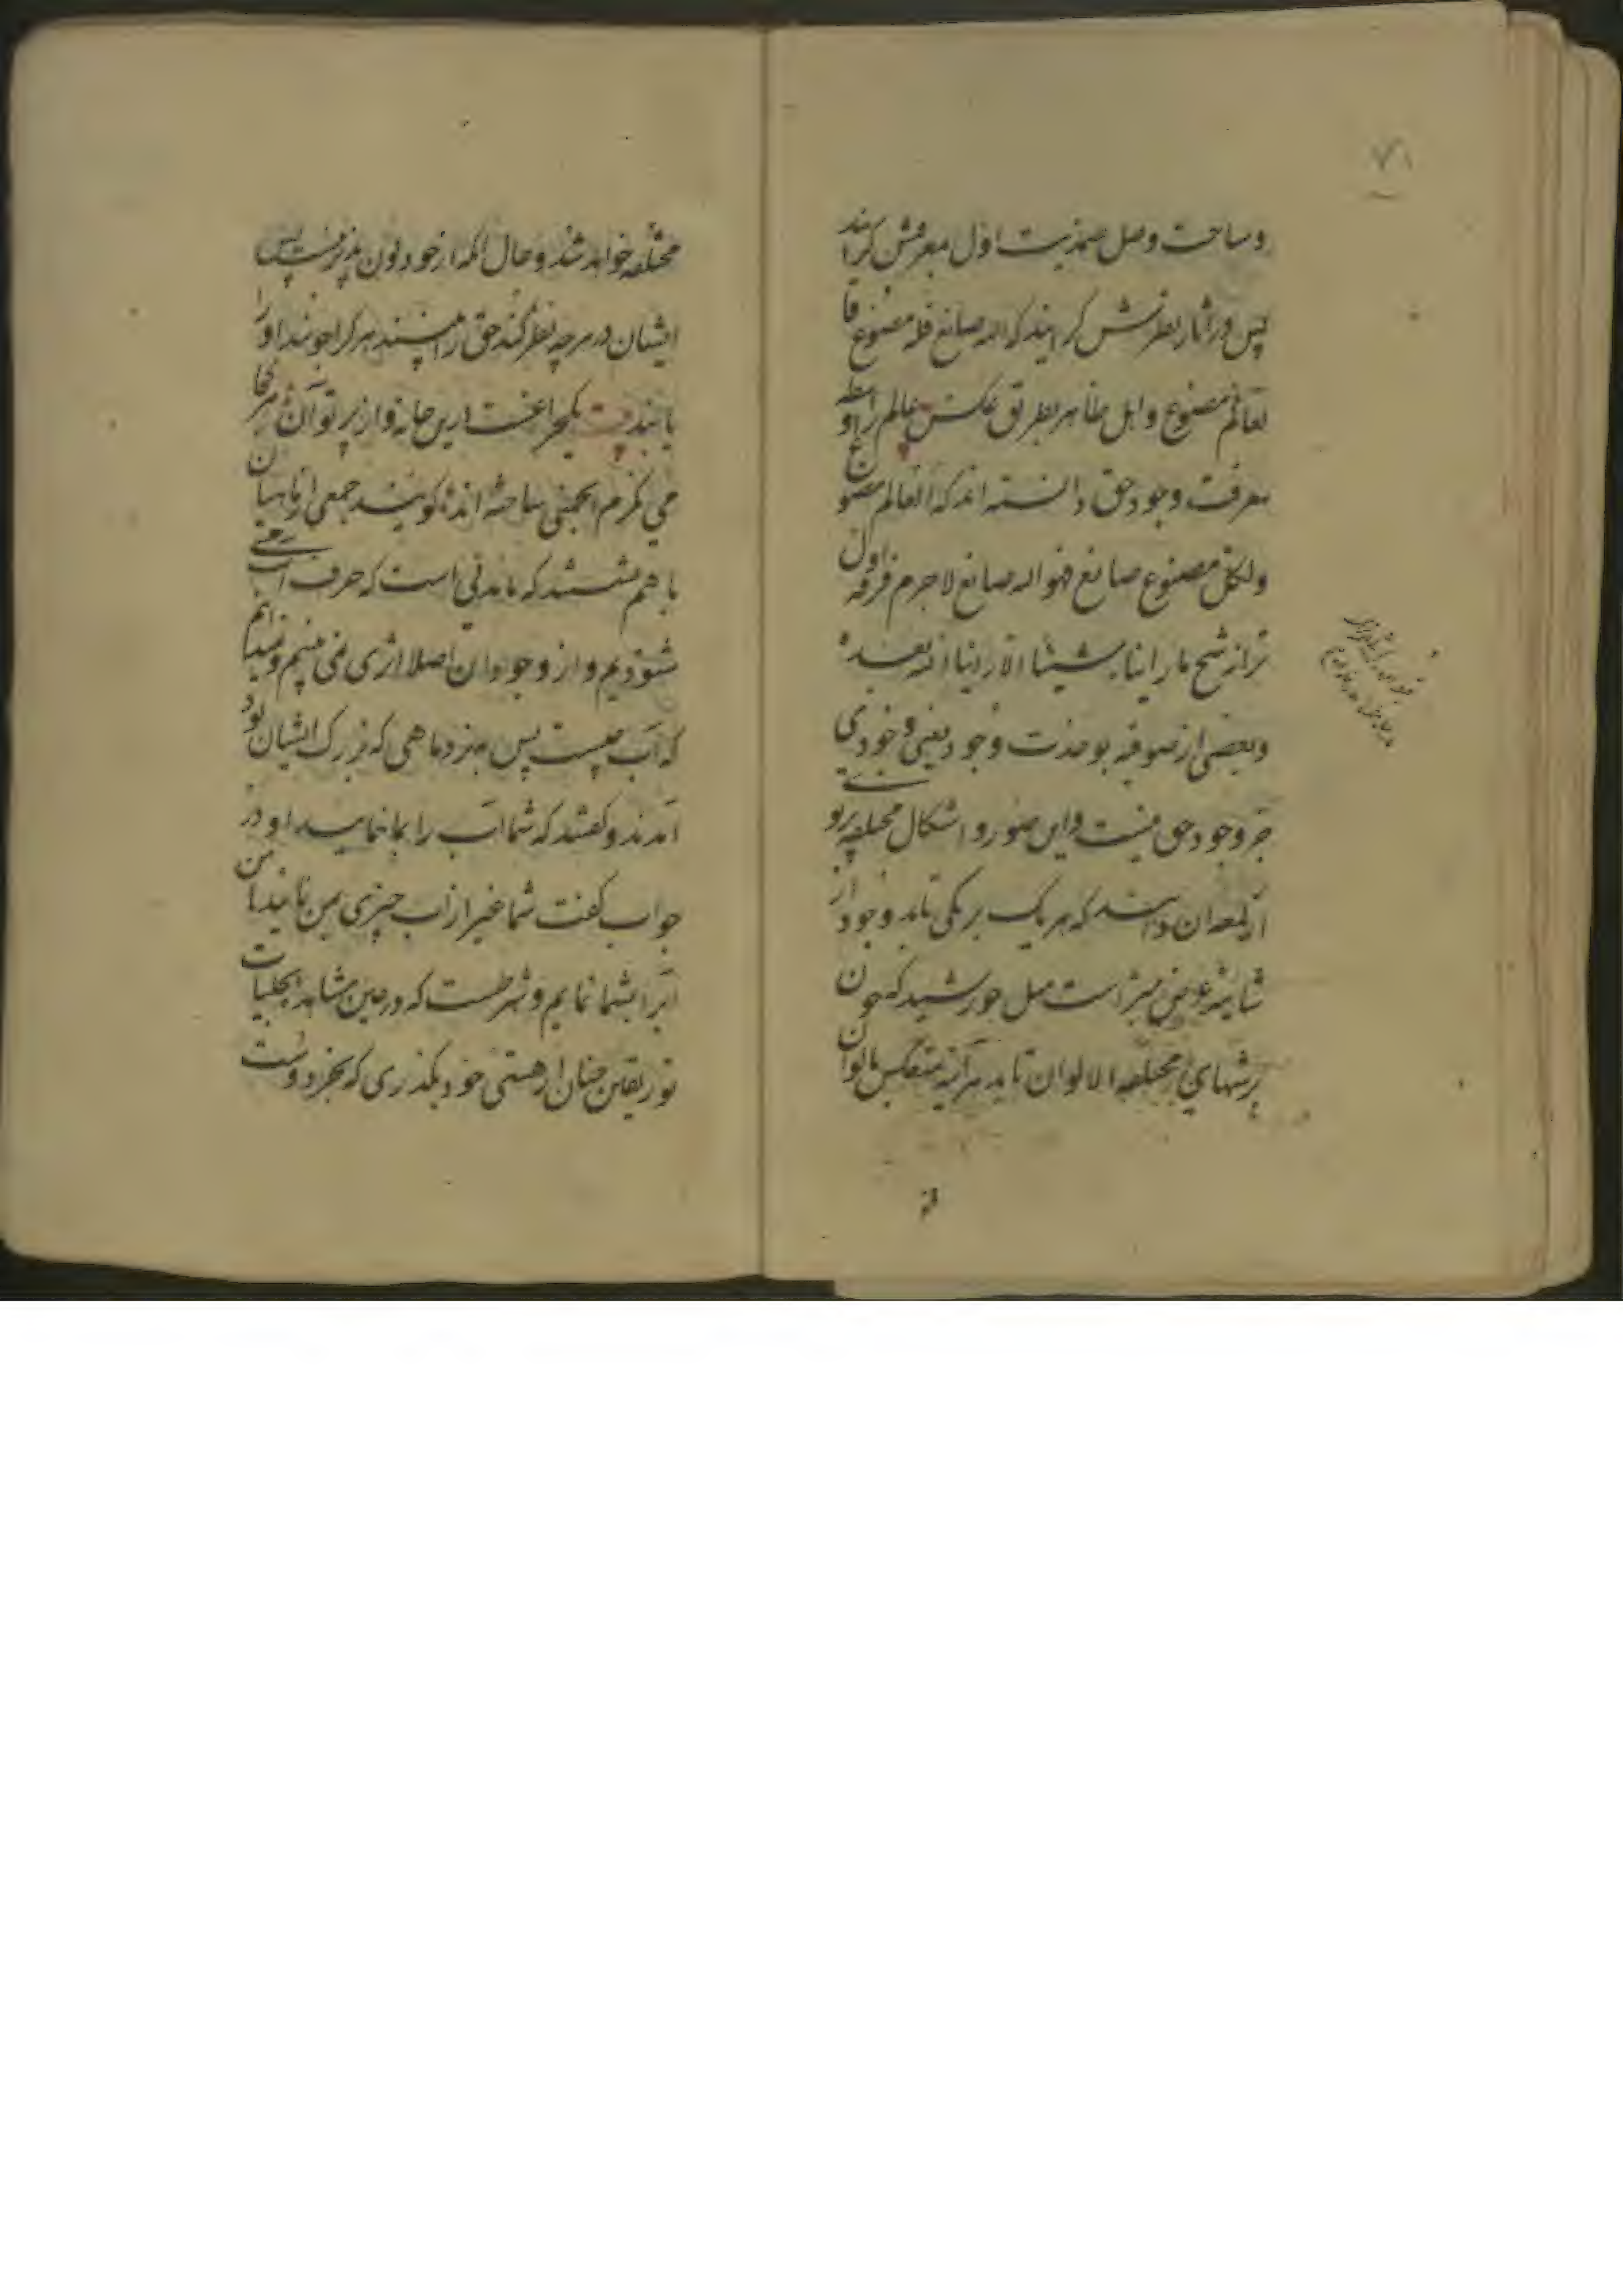 ۷۱
وساحت وصل صمدیت اول بمعرفتش کرایند
پس در اثار بنظرش کرایند که الله صانع فله مصنوع فا
لعالم مصنوع و اهل ظاهر بطریق عکس عالم را واسطه
معرفت وجود حق دانسته اند که العالم مصنوع
ولکل مصنوع صانع فهو اله صانع لاجرم فرقه اول
تر از شیح ما راینا شیئا الا راینا الله بعده
و بعضی از صوفیه بوحدت وجود یعنی وجودی
جز وجود حق نیست و این صور و اشکال مختلفه پرتو
از لمعه ان دانند که هر یک برنکی تابد وجود از
شایبه عوض مبراست مثل خورشید که چون
برشیشهای مختلفه الالوان تابد هرآینه منعکس بالوان
مختلفه خواهد شد و حال انکه از خود لون پذیر نیست پس
ایشان در هرچه نظر کنند حق را بینند هر کرا جویند او را
یابند بیت یکچراغست درین خانه و از پرتو آن هر کجا
می نکرم انجمنی ساخته اند کویند جمعی از ماهیان
با هم نشستند که ماندتی است که حرف آب
شنودیم و از وجود ان اصلا اثری نمی بینیم و نمیدانیم
که آب چیست پس بنزد ماهی که بزرک ایشان بود
آمدند و کفتند که شما آب را بما نمایید او در
جواب کفت شما غیر از آب چیزی بمن نمایید تا من
آبرا بشما نمایم و شرطست که در عین مشاهده تجلیات
نور یقین چنان از هستی خود بکذری که بجز دوست